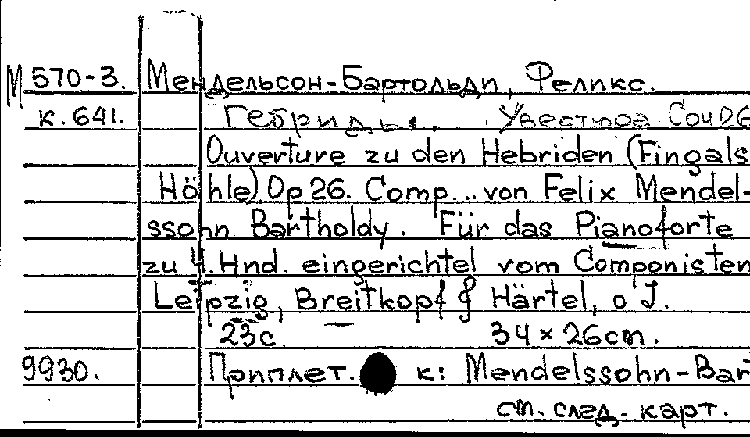 М 570-3. Мендельсон-Бартольди, Феликс.
к. 641. Гебриды. Увертюра Соч 26
Ouverture zu den Hebriden (Fingals
Höhle) Op 26. Comp... von Felix Mendel-
ssohn Bartholdy. Für das Pianoforte
zu 4. Hnd. eingerichtet vom Componisten
Leipzig, Breitkopf & Härtel, o J.
23с 34 × 26cm.
9930. Приплет. к: Mendelssohn-Bar
см. след. карт.